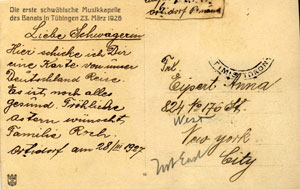 Die erste schwäbische Musikkapelle
des Banats in Tübingen 23. März 1928
Liebe Schwagerin
Hier schicke ich Dir
eine Karte von unser
Deutschland Reise.
Es ist noch alles
gesund. Fröhliche
Ostern wünscht
Familie
am 28/III 1927
Anna
824 No 176 St.
West
New york
City